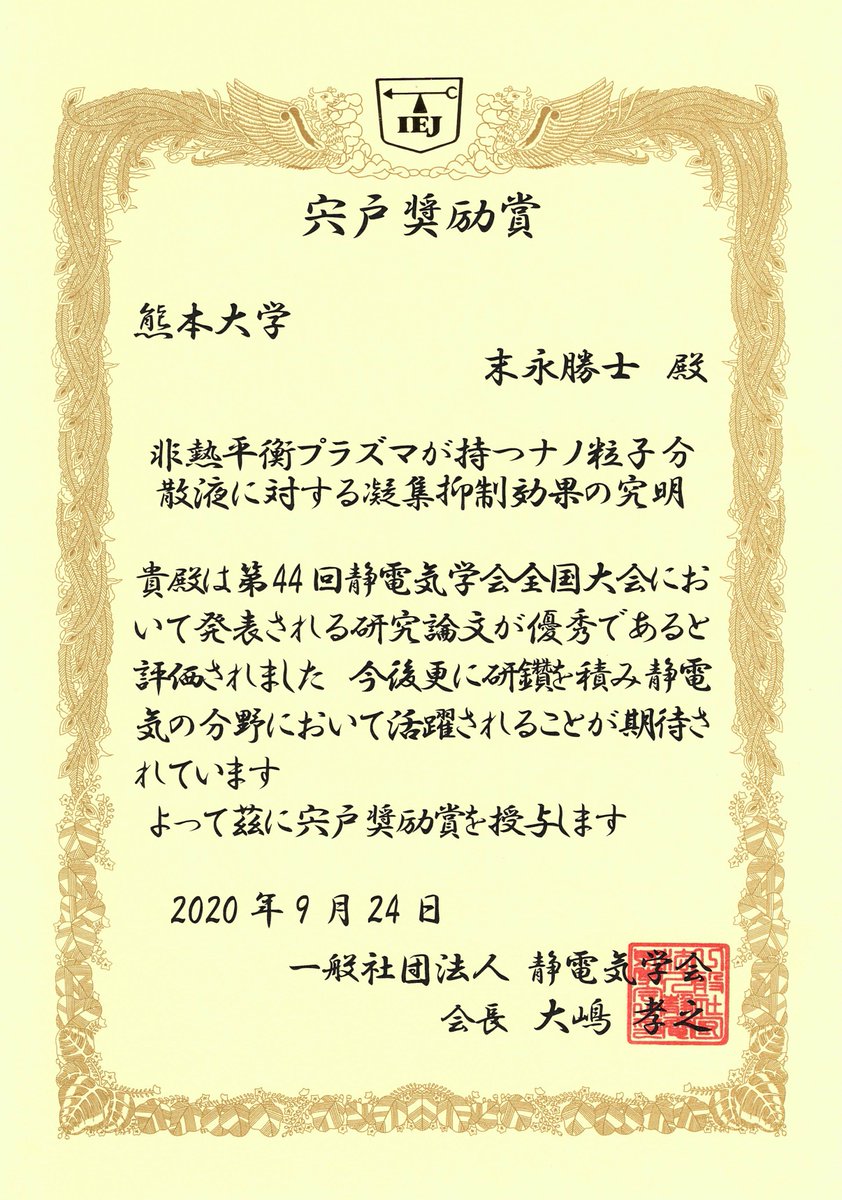 IEJ
宍戸奨励賞
熊本大学
末永勝士 殿
非熱平衡プラズマが持つナノ粒子分
散液に対する凝集抑制効果の究明
貴殿は第44回静電気学会全国大会にお
いて発表される研究論文が優秀であると
評価されました 今後更に研鑽を積み静電
気の分野において活躍されることが期待さ
れています
よって茲に宍戸奨励賞を授与します
2020年9月24日
一般社団法人 静電気学会
会長 大嶋 孝之